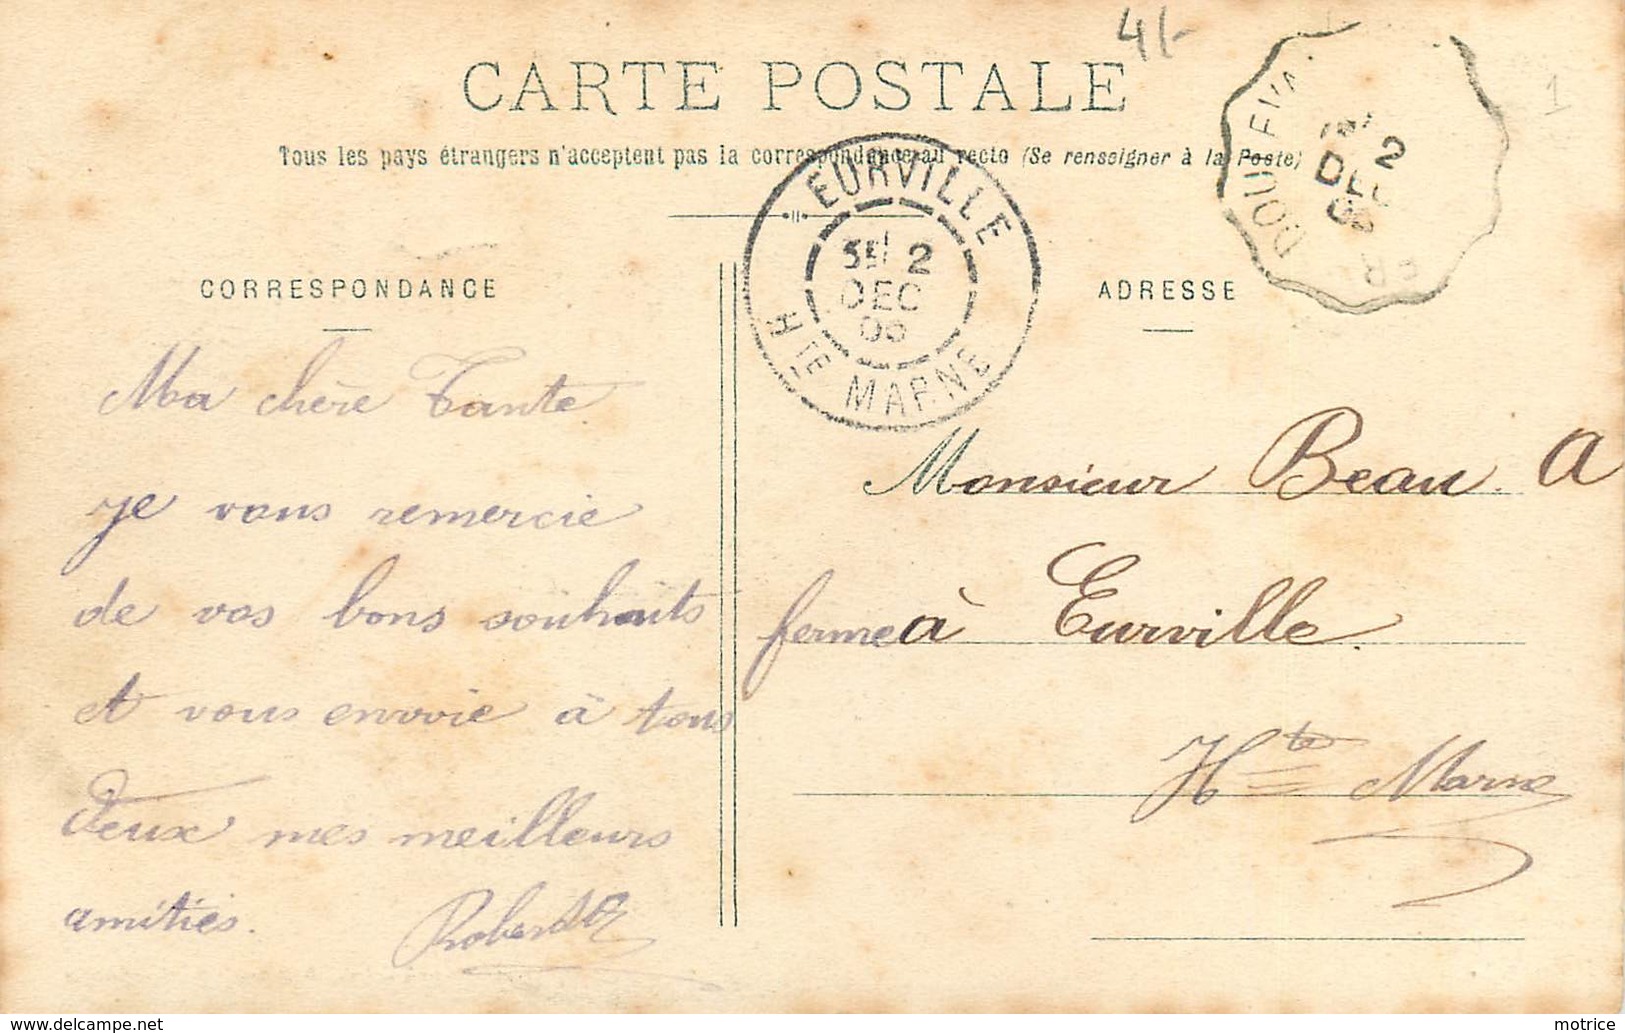 4/-
1
CARTE POSTALE
Tous les pays étrangers n'acceptent pas la correspondance au recto (Se renseigner à la Poste)
EURVILLE
2
DEC
Hte MARNE
2
DEC
CORRESPONDANCE
ADRESSE
Ma chère Tante
je vous remercie
de vos bons souhaits
et vous envoie à tous
deux mes meilleurs
amitiés.
Robert
Monsieur Beau. A
ferme à Eurville.
Hte Marne
delcampe.net
motrice